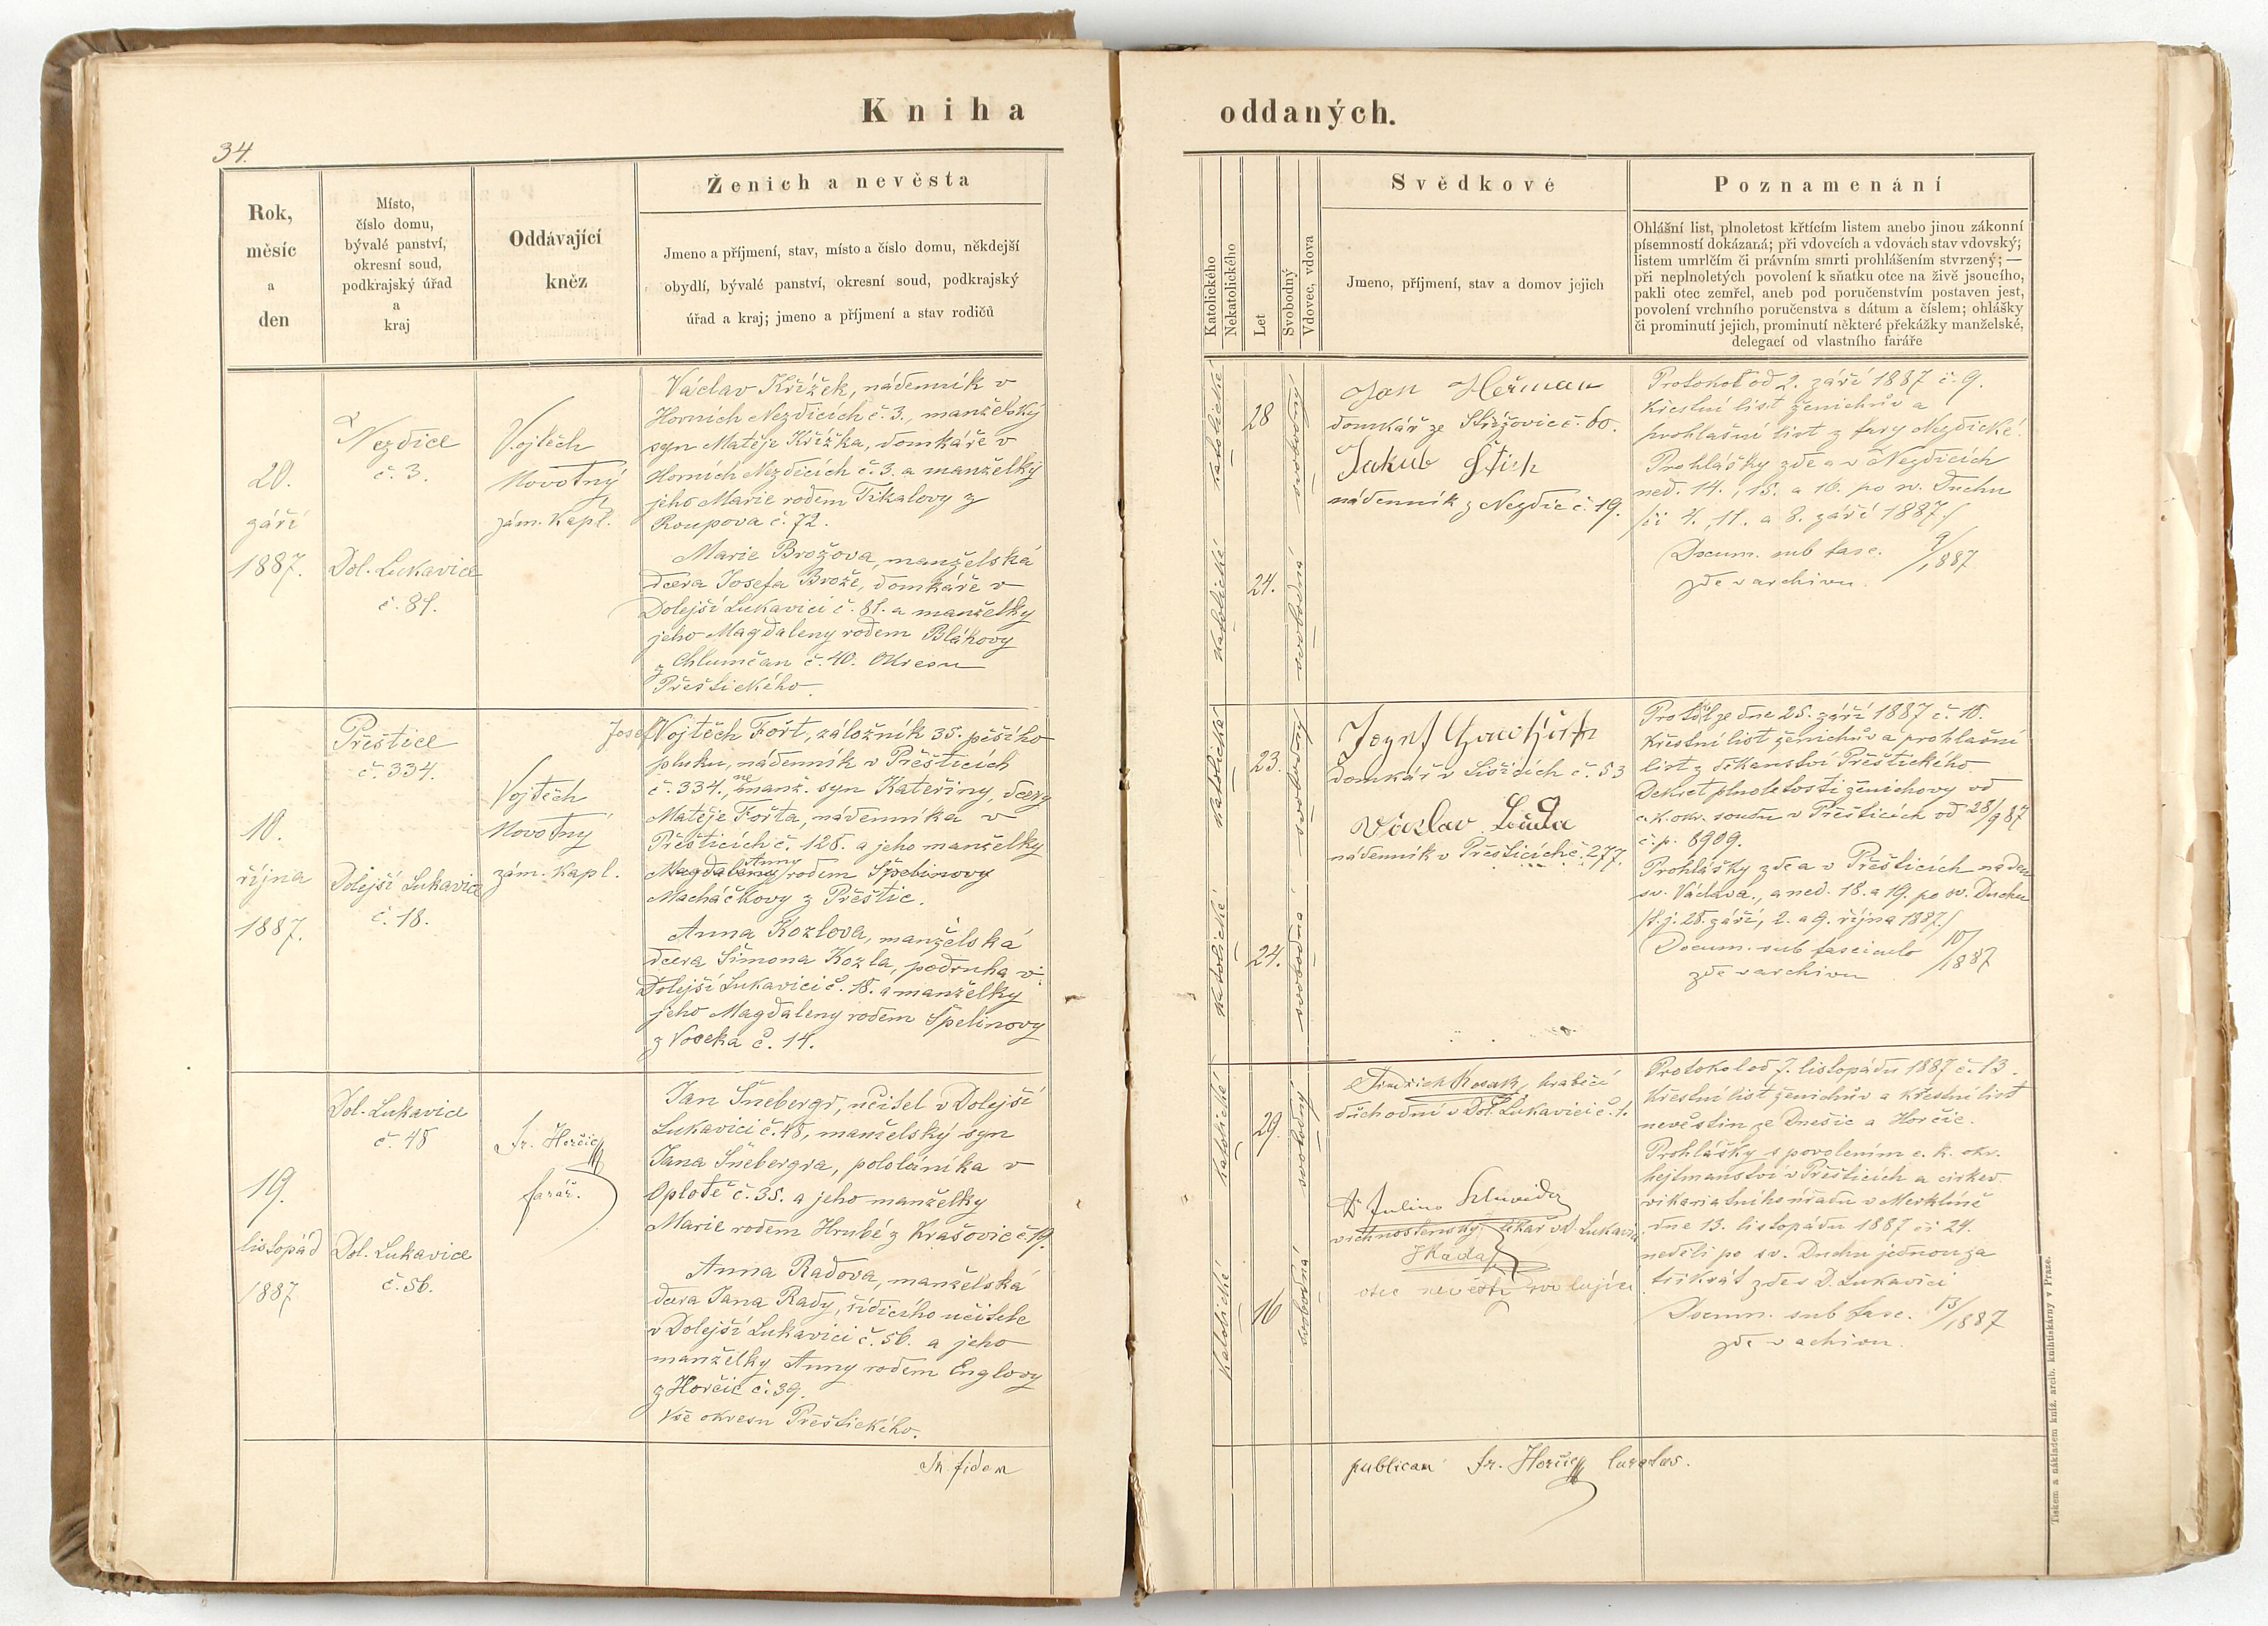 Kniha
34.
Rok,
měsíc
a
den
Místo,
číslo domu,
bývalé panství,
okresní soud,
podkrajský úřad
a
kraj
Oddávající
kněz
Ženich a nevěsta
Jmeno a příjmení, stav, místo a číslo domu, někdejší
obydlí, bývalé panství, okresní soud, podkrajský
úřad a kraj; jmeno a příjmení a stav rodičů
20.
září
1887.
Nezdice
č. 3.
Dol. Lukavice
č. 81.
Vojtěch
Novotný
zám. kapl.
Václav Křížek, nádenník v
Horních Nezdicích č. 3., manželský
syn Matěje Křížka, domkáře v
Horních Nezdicích č. 3. a manželky
jeho Marie rodem Tikalovy z
Roupova č. 72.
Marie Brožova, manželská
dcera Josefa Brože, domkáře v
Dolejší Lukavici č. 81. a manželky
jeho Magdaleny rodem Blákovy
z Chlumčan č. 40. Okresu
Přeštického.
10.
října
1887.
Přeštice
č. 334.
Dolejší Lukavice
č. 18.
Vojtěch
Novotný
zám. kapl.
Josef Vojtěch Fořt, záložník 35. pěšího
pluku, nádenník v Přešticích
č. 334., ne manž. syn Kateřiny, dcery
Matěje Fořta, nádenníka v
Přešticích č. 128. a jeho manželky
Anny
Magdaleny rodem Špelinovy
Macháčkovy z Přeštic.
Anna Kozlova, manželská
dcera Šimona Kozla, podruha v
Dolejší Lukavici č. 18. a manželky
jeho Magdaleny rodem Špelinovy
z Voseka č. 14.
19.
listopad
1887
Dol. Lukavice
č. 48
Dol. Lukavice
č. 56.
Fr. Horčic
farář.
Jan Šnebergr, učitel v Dolejší
Lukavici č. 48, manželský syn
Jana Šnebergra, pololáníka v
Oplotě č. 35. a jeho manželky
Marie rodem Hrubé z Krašovic č. 19.
Anna Radova, manželská
dcera Jana Rady, řídícího učitele
v Dolejší Lukavici č. 56. a jeho
manželky Anny rodem Englovy
z Horčic č. 39.
Vše okresu Přeštického.
In fidem
oddaných.
Katolického
Nekatolického
Let
Svobodný
Vdovec, vdova
Svědkové
Jmeno, příjmení, stav a domov jejich
Poznamenání
Ohlášní list, plnoletost křtícím listem anebo jinou zákonní
písemností dokázaná; při vdovcích a vdovách stav vdovský;
listem umrlčím či právním smrti prohlášením stvrzený; —
při neplnoletých povolení k sňatku otce na živě jsoucího,
pakli otec zemřel, aneb pod poručenstvím postaven jest,
povolení vrchního poručenstva s dátum a číslem; ohlášky
či prominutí jejich, prominutí některé překážky manželské,
delegací od vlastního faráře
katolické
28
svobodný
katolické
24.
svobodná
Jan Heřman
domkář ze Střížovic č. 60.
Jakub Štich
nádenník z Nezdic č. 19.
Protokol od 2. září 1887 č. 9.
Křestní list ženichův a
prohlašní list z fary Nezdické.
Prohlášky zde a v Nezdicích
ned. 14., 15. a 16. po sv. Duchu
/či 4., 11. a 8. září 1887/
Docum. sub fasc. 9/1887
zde v archivu.
katolické
23.
svobodný
katolické
24.
svobodná
Josef
domkář v Lišicích č. 53
Václav Louda
nádenník v Přešticích č. 277.
Protokol ze dne 25. září 1887 č. 10.
Křestní list ženichův a prohlašní
list z děkanství Přeštického.
Dekret plnoletosti ženichovy od
c. k. okr. soudu v Přešticích od 28/9 87
č. p. 8909.
Prohlášky zde a v Přešticích na den
sv. Václava, a ned. 18. a 19. po sv. Duchu
/t. j. 28. září, 2. a 9. října 1887./
Docum. sub fasciculo 10/1887
zde v archivu
katolické
29.
svobodný
katolické
16
svobodná
Jindřich Kosak, hraběcí
důchodní v Dol. Lukavici č. 1.
Dr Julius
vrchnostenský lékař v D. Lukavici
JRada
otec nevěsty svolující
Protokol od 7. listopádu 1887 č. 13.
Křestní list ženichův a křestní list
nevěstin ze Dnešic a Horčic.
Prohlášky s povolením c. k. okr.
hejtmanství v Přešticích a církev.
vikariatního úřadu v Merklíně
dne 13. listopádu 1887 či 24.
neděli po sv. Duchu jednou za
třikrát zde v D. Lukavici
Docum. sub fasc. 13/1887
zde v achivu.
publicam Fr. Horčic curatus.
Tiskem a nákladem kníž. arcib. knihtiskárny v Praze.